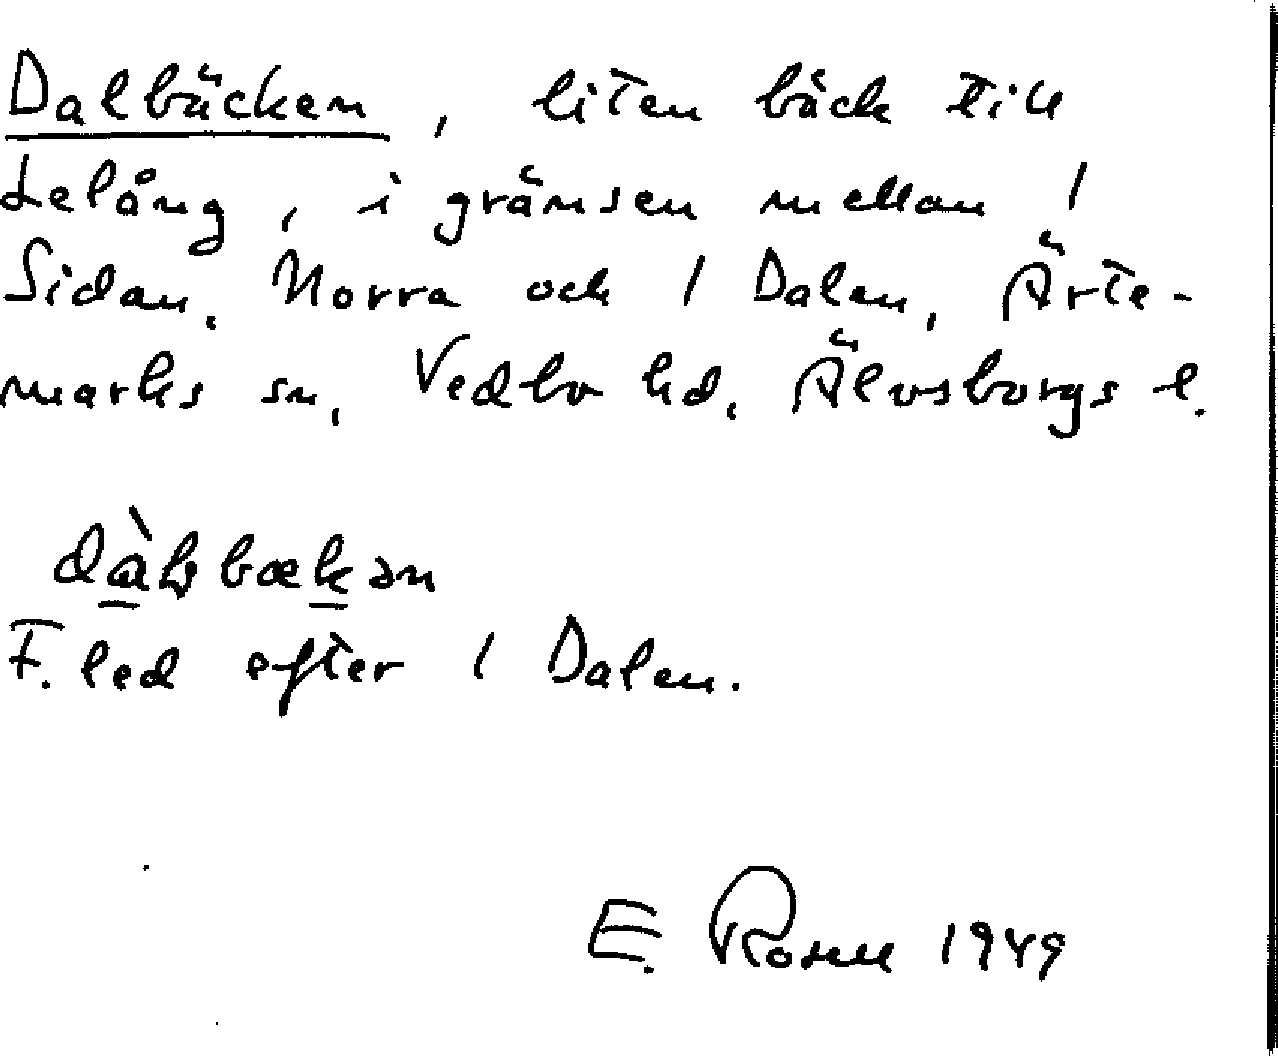 Dalbäcken, liten bäck till
Lelång, i gränsen mellan 1
Sidan, Norra och 1 Dalen, Ärte-
marks sn, Vedbo hd, Älvsborgs l.
F. led efter 1 Dalen.
E. Rosell 1949